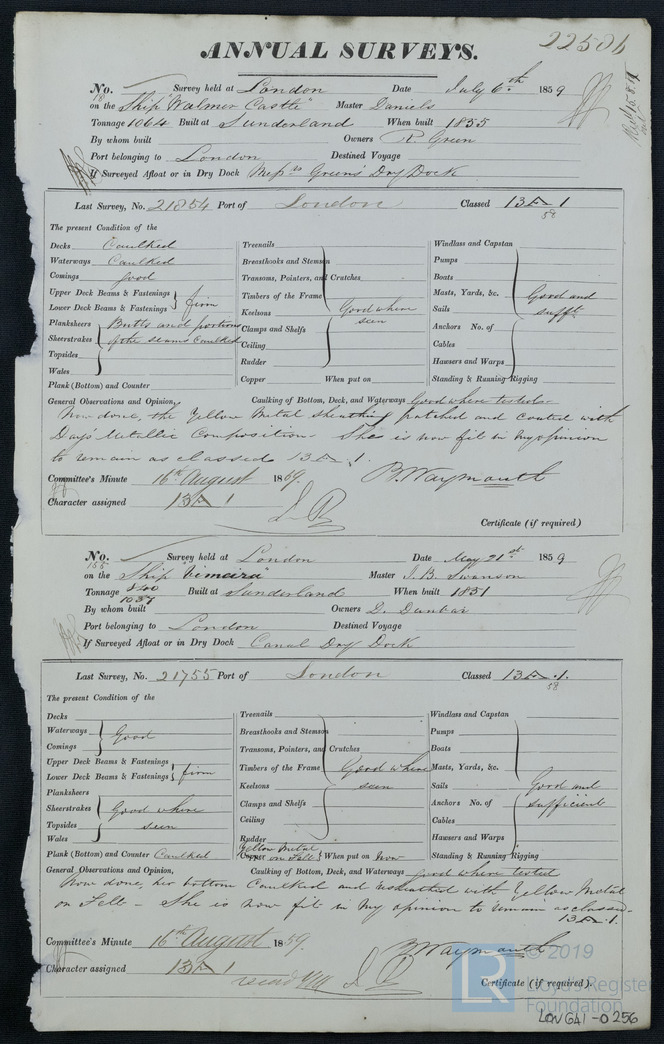 22586
ANNUAL SURVEYS.
No. 18 Survey held at London Date July 6th 1859
on the Ship "Walmer Castle" Master Daniels
Tonnage 1064 Built at Sunderland When built 1855
By whom built Owners R. Green
Port belonging to London Destined Voyage
If Surveyed Afloat or in Dry Dock Green's Dry Dock
Last Survey, No. 21854 Port of London Classed 13 A 1
58
The present Condition of the
Decks Caulked
Waterways Caulked
Comings good
Upper Deck Beams & Fastenings
Lower Deck Beams & Fastenings } firm
Planksheers Butts and portions
Sheerstrakes of the seams caulked
Topsides
Wales
Plank (Bottom) and Counter
Treenails
Breasthooks and Stemson
Transoms, Pointers, and Crutches
Timbers of the Frame
Keelsons Good where
Clamps and Shelfs seen
Ceiling
Rudder
Copper When put on
Windlass and Capstan
Pumps
Boats
Masts, Yards, &c. Good and
Sails sufft
Anchors No. of
Cables
Hawsers and Warps
Standing & Running Rigging
General Observations and Opinion, Caulking of Bottom, Deck, and Waterways Good where tested
Now done, the Yellow Metal sheathing patched and coated with
Day's Metallic Composition. She is now fit in my opinion
to remain as classed 13 A 1.
Committee's Minute 16th August 1859. B. Waymouth
Character assigned 13 A 1
Certificate (if required)
No. 155 Survey held at London Date May 21st 1859
on the Ship "Vimeira" Master J. B. Swanson
Tonnage 940 1037 Built at Sunderland When built 1851
By whom built Owners D. Dunbar
Port belonging to London Destined Voyage
If Surveyed Afloat or in Dry Dock Canal Dry Dock
Last Survey, No. 21755 Port of London Classed 13 A 1.
58
The present Condition of the
Decks
Waterways } Good
Comings
Upper Deck Beams & Fastenings
Lower Deck Beams & Fastenings } firm
Planksheers
Sheerstrakes Good where
Topsides seen
Wales
Plank (Bottom) and Counter Caulked
Treenails
Breasthooks and Stemson
Transoms, Pointers, and Crutches
Timbers of the Frame Good where
Keelsons seen
Clamps and Shelfs
Ceiling
Rudder
Yellow Metal
Copper on Felt } When put on Now
Windlass and Capstan
Pumps
Boats
Masts, Yards, &c.
Sails Good and
Anchors No. of sufficient
Cables
Hawsers and Warps
Standing & Running Rigging
General Observations and Opinion, Caulking of Bottom, Deck, and Waterways good where tested
Now done, her bottom Caulked and resheathed with Yellow Metal
on Felt - She is now fit in my opinion to remain as classed
13 A 1.
Committee's Minute 16th August 1859 B. Waymouth
Character assigned 13 A 1
Certificate (if required).
© 2019
LR Lloyd's Register
Foundation
LON641-0256